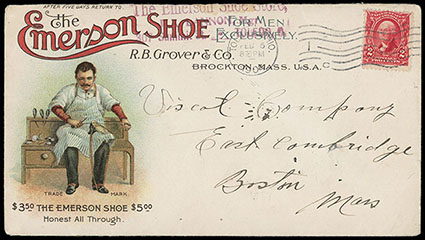 AFTER FIVE DAYS RETURN TO
the
Emerson SHOE
FOR MEN
EXCLUSIVELY.
The Emerson Shoe Store,
R.B. Grover & Co.
BROCKTON, MASS. U.S.A.
FEB 6
Viscol Company
East Cambridge
Boston
Mass
TRADE MARK.
$3.50 THE EMERSON SHOE $5.00
Honest All Through.